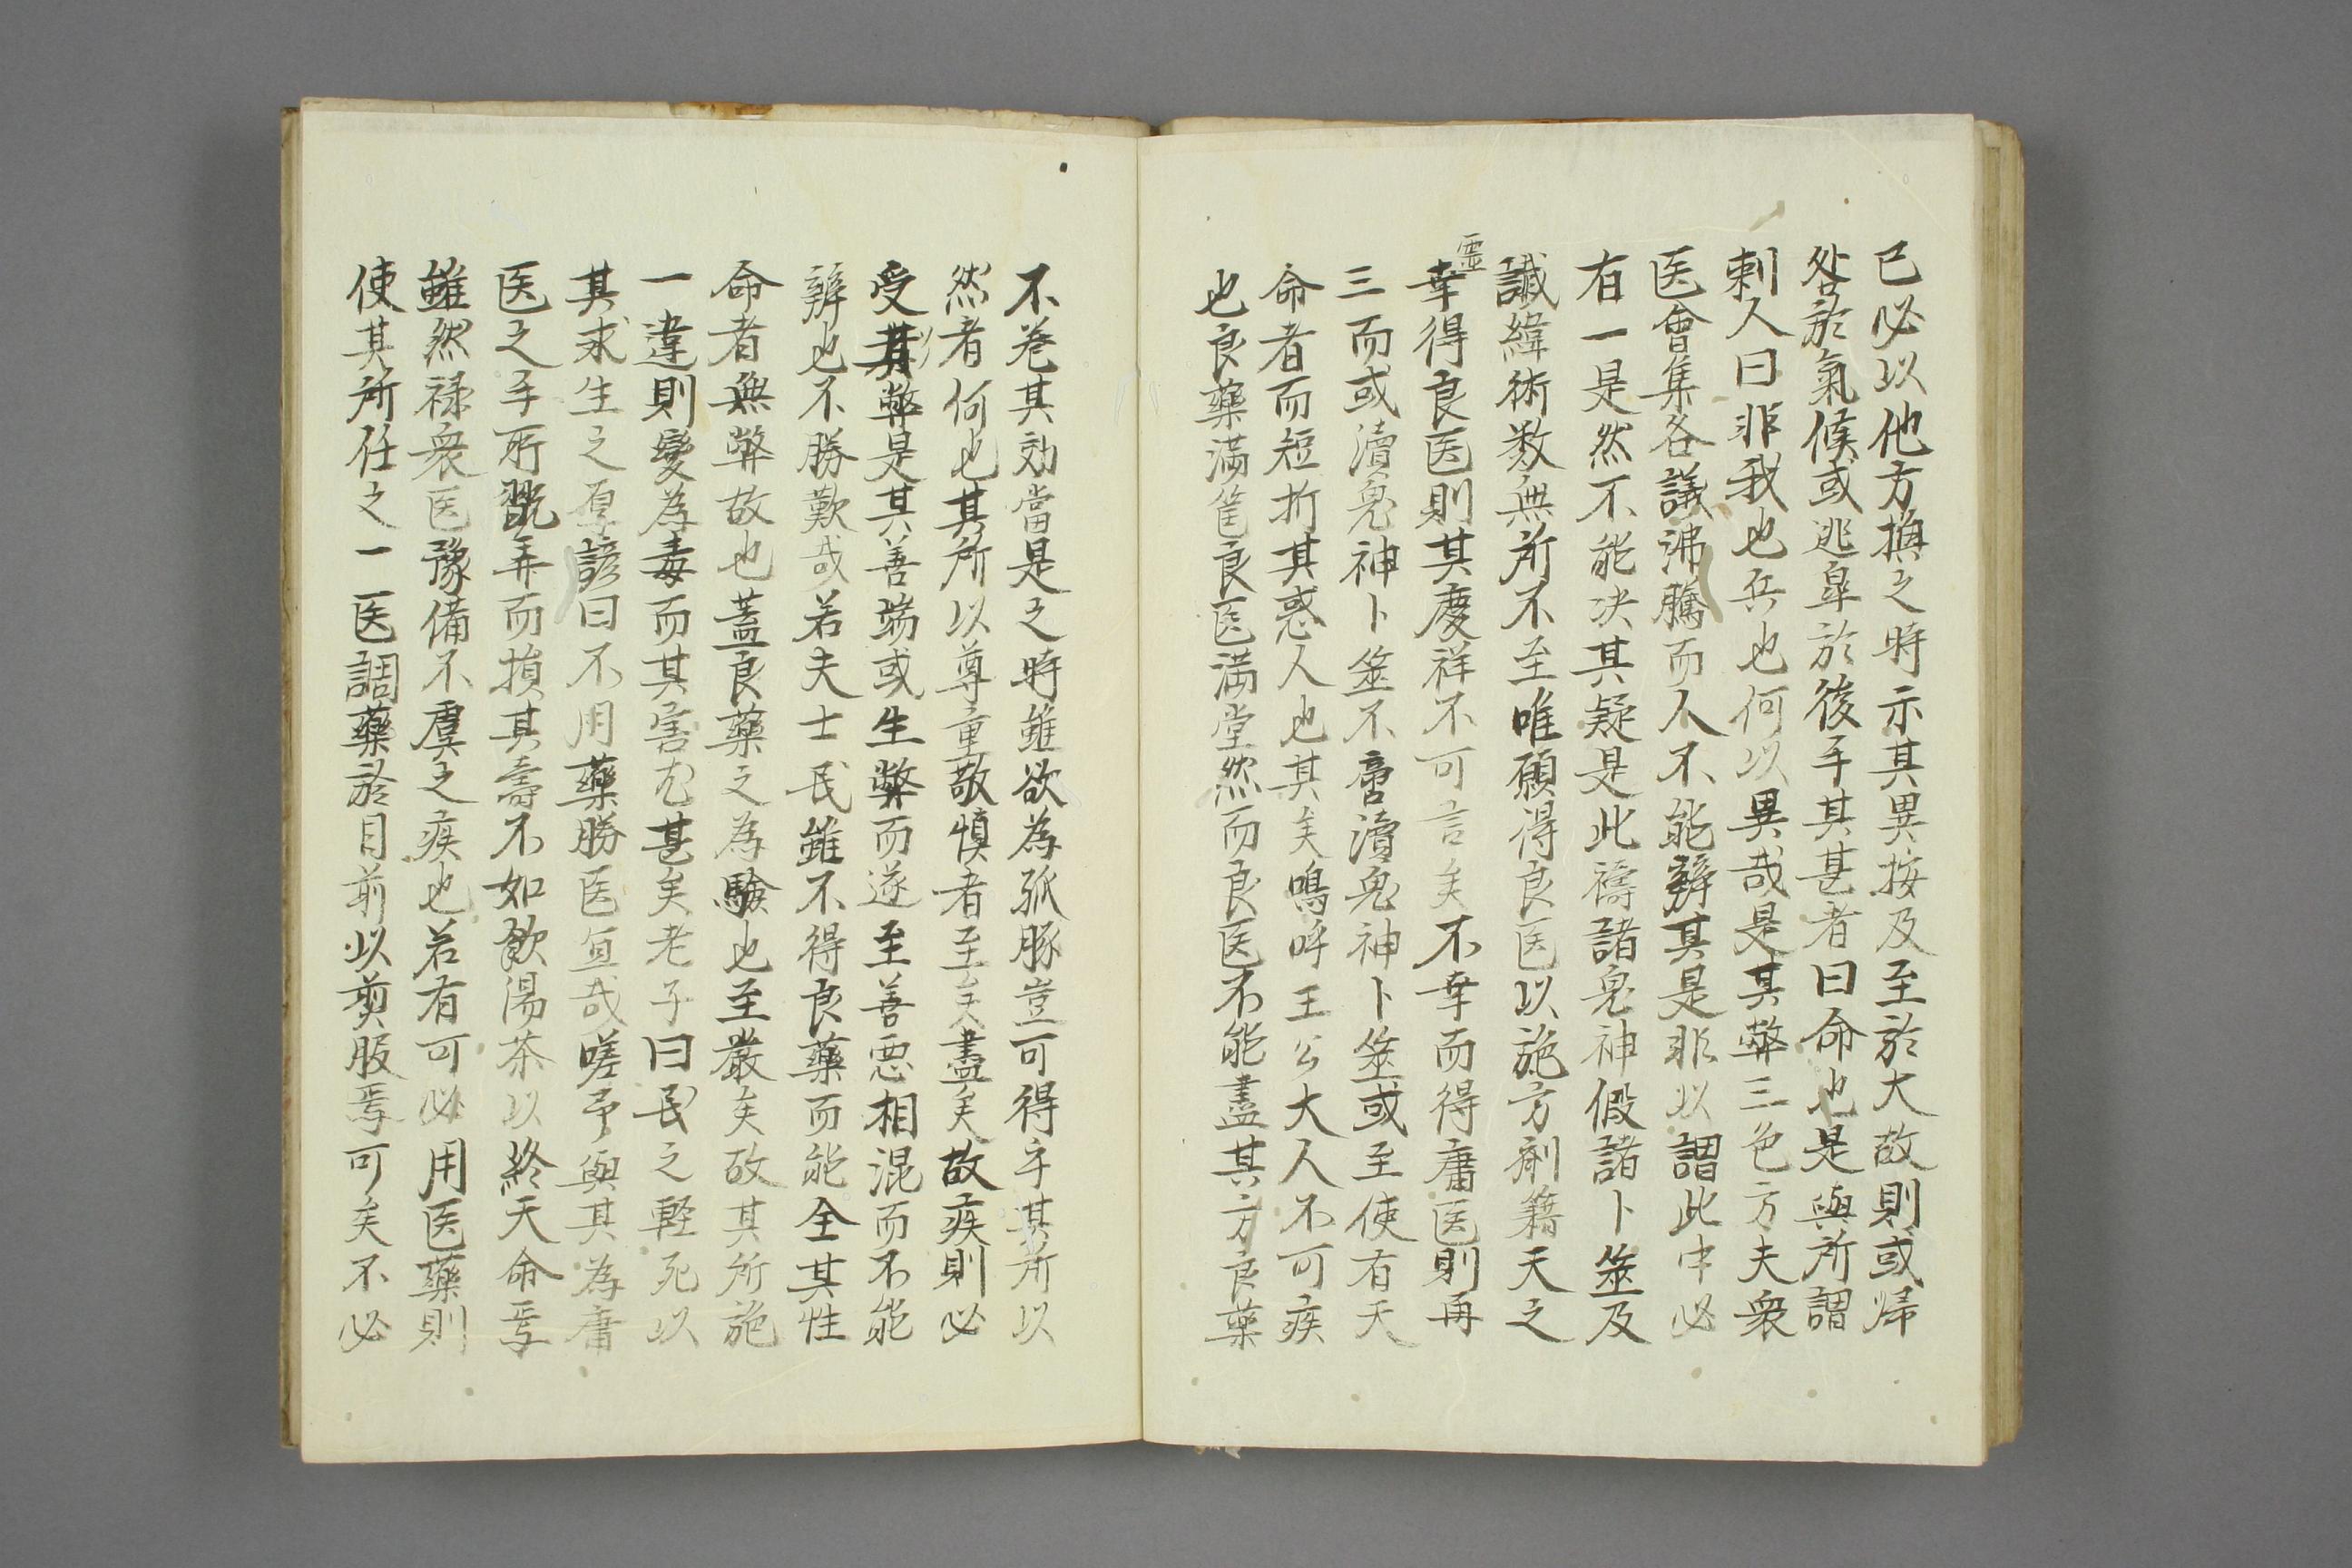 已必以他方換之時示其異按及至於大故則或帰
咎於氣候或逃辠於後手其甚者曰命也是與所謂
刺人曰非我也兵也何以異哉是其弊三色方夫衆
医會集各議沸騰而人不能辨其是非以謂此中必
有一是然不能决其疑是此禱諸鬼神假諸卜筮及
讖緯術数無所不至唯願得良医以施方劑籍天之
霊
幸得良医則其慶祥不可言矣不幸而得庸医則再
三而或瀆鬼神卜筮不啻瀆鬼神卜筮或至使有天
命者而短折其惑人也其矣嗚呼王公大人不可疾
也良藥満篋良医満堂然而良医不能盡其方良藥
不巻其効當是之時雖欲為孤豚豈可得乎其所以
然者何也其所以尊重敬慎者至矣盡矣故疾則必
受其弊是其善端或生弊而遂至善悪相混而不能
辨也不勝歎哉若夫士民雖不得良藥而能全其性
命者無弊故也蓋良藥之為驗也至嚴矣故其所施
一違則變為毒而其害尤甚矣老子曰民之輕死以
其求生之厚諺曰不用藥勝医宜哉嗟乎與其為庸
医之手所翫弄而損其壽不如飲湯茶以終天命焉
雖然禄衆医豫備不虞之疾也若有可必用医藥則
使其所任之一医調藥於目前以煎服焉可矣不必